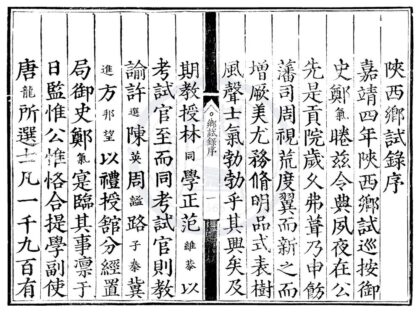 陝西鄉試錄序
嘉靖四年陝西鄉試巡按御
史鄭氣睠茲令典夙夜在公
先是貢院歲久弗葺乃申飭
藩司周視荒度翼而新之而
增厥美尤務脩明品式表樹
風聲士氣勃勃乎其興矣及
鄉試錄序 一
期教授林同學正范 以
考試官至而同考試官則教
諭許選陳英周 路子泰冀
進方邦望以禮授舘分經置
局御史鄭氣寔臨其事禀于
日監惟公惟恪合提學副使
唐龍所選士凡一千九百有